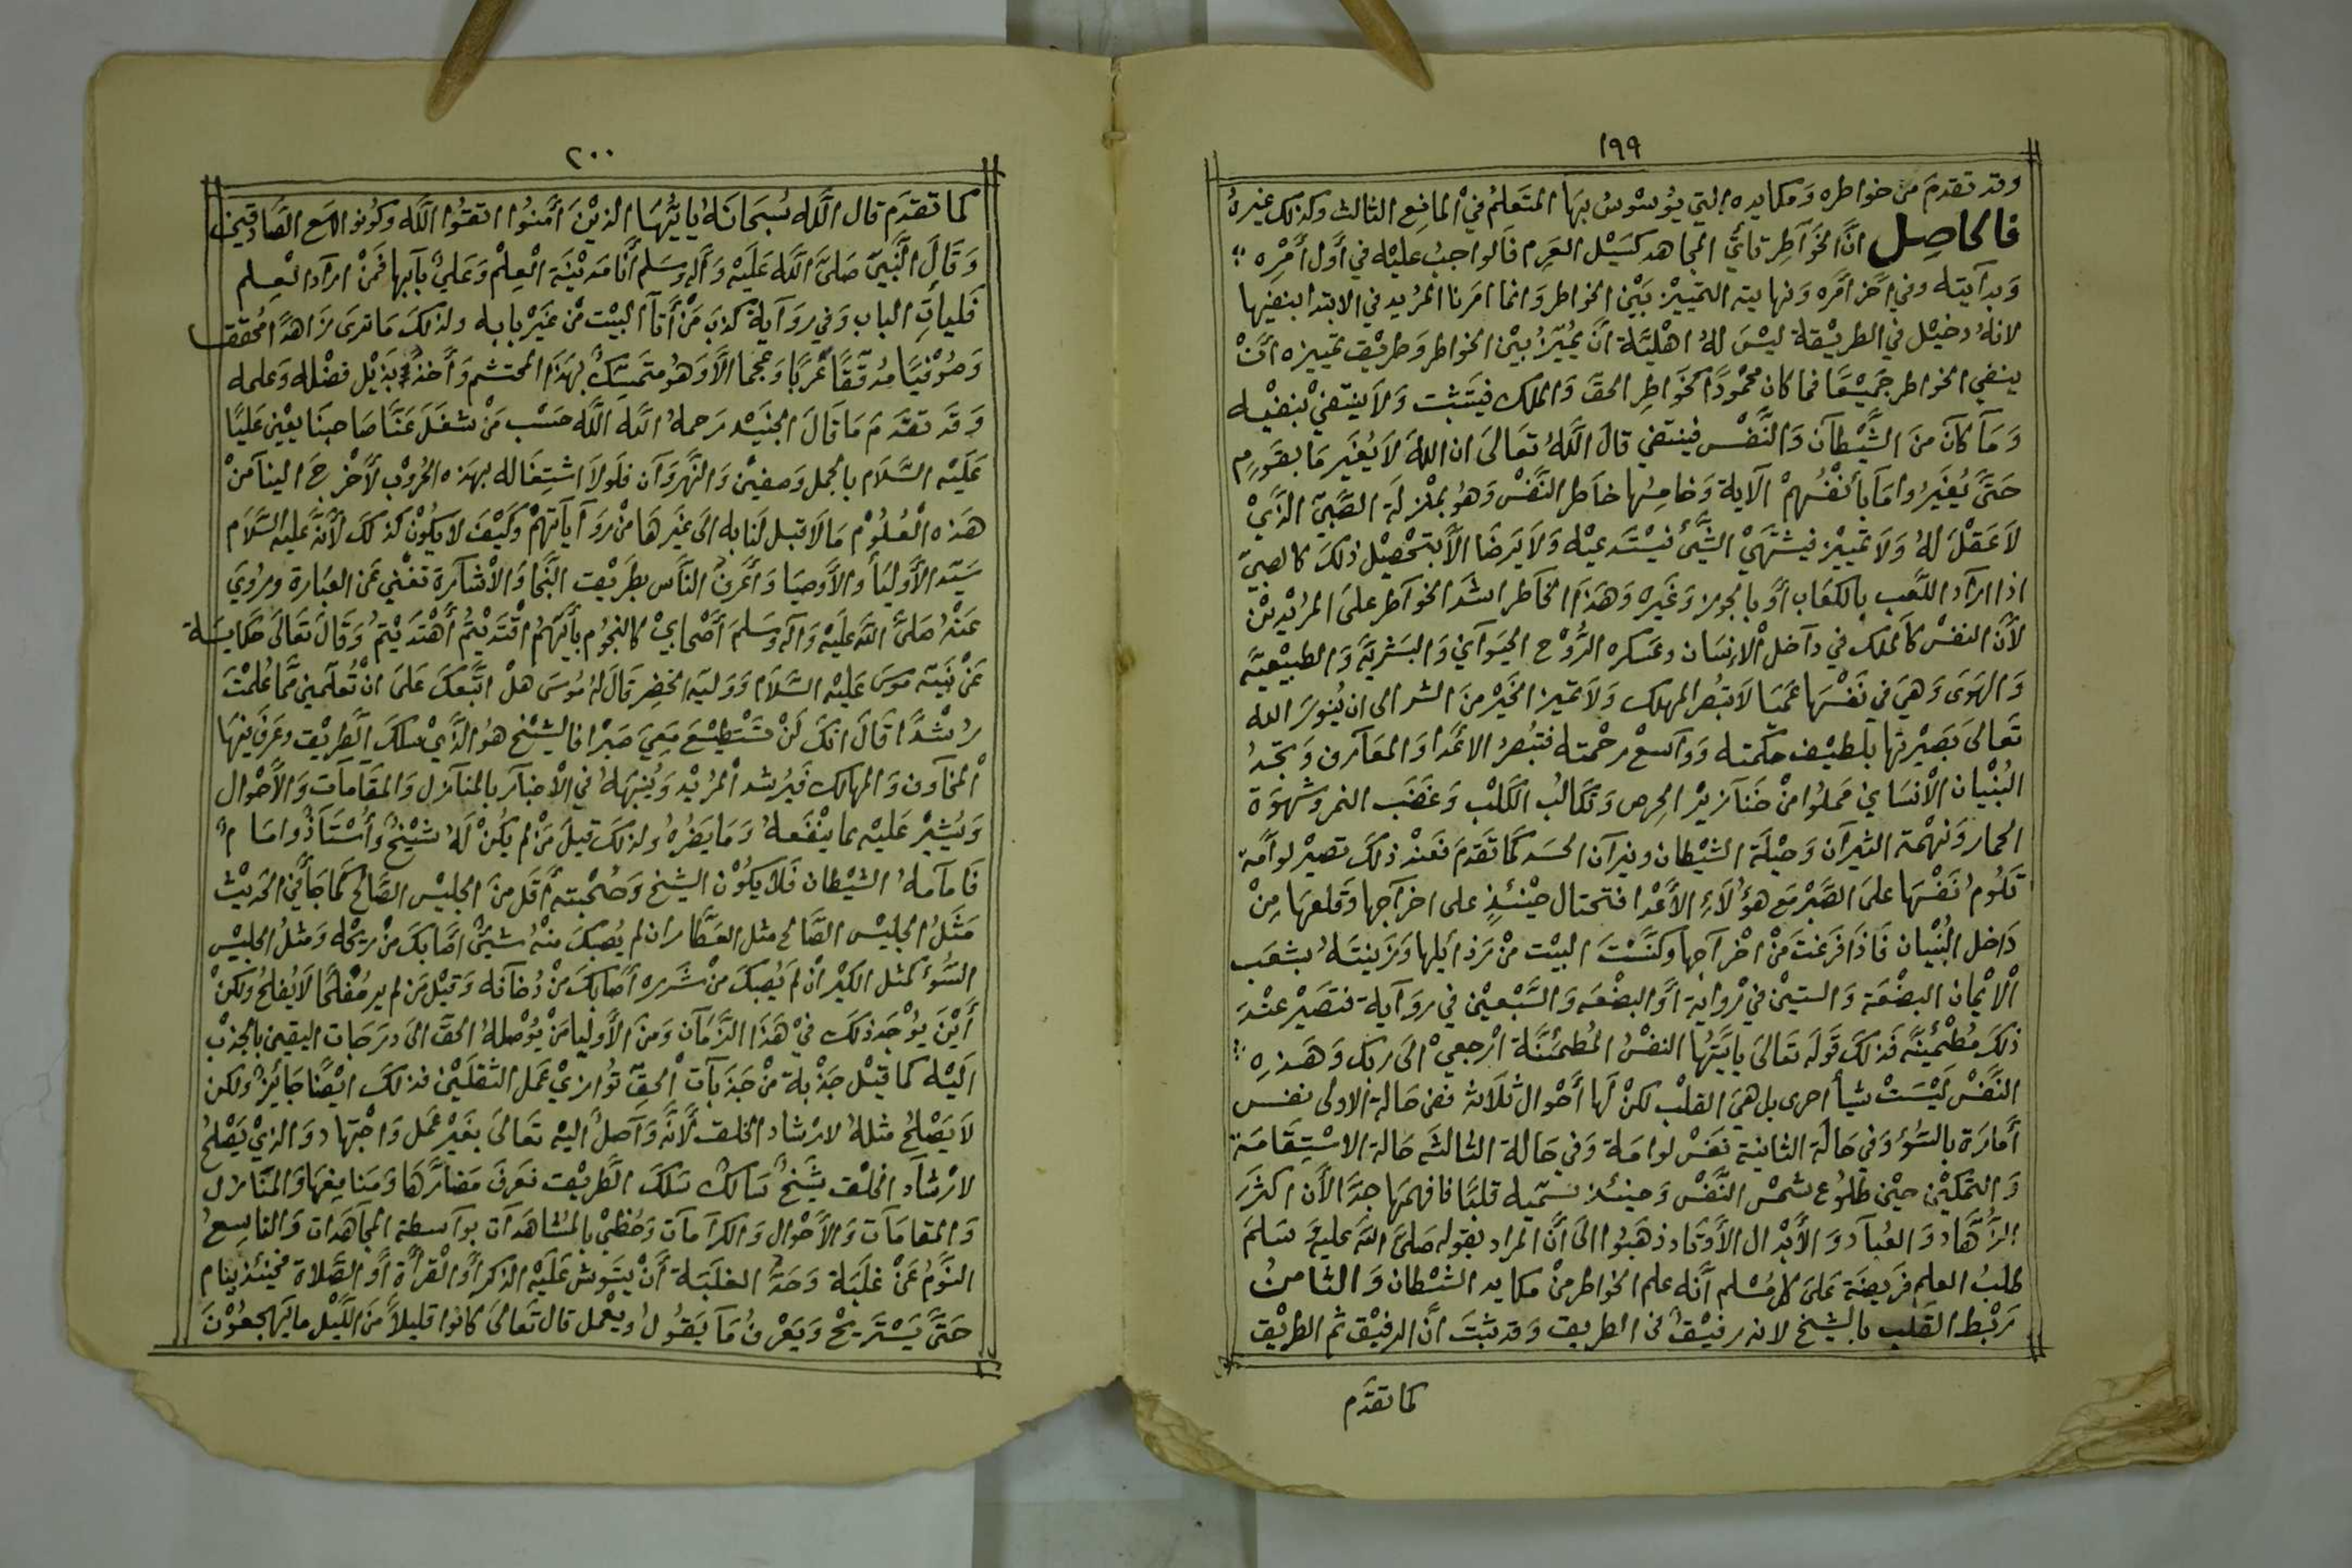 ١٩٩
وقد تقدم من خواطره ومكايده التي يوسوس بها المتعلم في المانع الثالث وكذلك غيره
فالحاصل ان الخواطر تأتي المجاهد كسيل العرم فالواجب عليه في أول أمره
وبدآيته وفي آخر أمره ونهايته التمييز بين الخواطر وانما امرنا المريد في الابتدا بنفيها
لانه دخيل في الطريقة ليس له اهلية أن يميز بين الخواطر وطريق تمييزه أن
ينفي الخواطر جميعا فما كان محمودا كخواطر الحق والملك فيتثبت ولا ينتفي بنفيه
وما كان من الشيطان والنفس فينتفي قال الله تعالى ان الله لا يغير ما بقوم
حتى يغيروا ما بأنفسهم الآية وخامسها خاطر النفس وهو بمنزلة الصبي الذي
لا عقل له ولا تمييز فيشتهي الشئ فيستدعيه ولا يرضا الا بتحصيل ذلك كالصبي
اذا اراد اللعب بالكعاب أو بالجوز وغيره وهذا الخاطر اشد الخواطر على المريدين
لأن النفس كالملك في داخل الإنسان وعسكره الروح الحيواني والبشرية والطبيعية
والهوى وهي في نفسها عميا لا تبصر المهلك ولا تميز الخير من الشر الى ان ينور الله
تعالى بصيرتها بلطيف حكمته وواسع رحمته فتبصر الاعدا والمعارف وتجد
البنيان الانساني مملوا من خنازير الحرص وتكالب الكلب وغضب النمر وشهوة
الحمار ونهمة الثيران وحيلة الشيطان ونيران الحسد كما تقدم فعند ذلك تصير لوامة
تلوم نفسها على الصبر مع هؤلاء الأعدا فتحتال حينئذ على اخراجها وقلعها من
داخل البنيان فاذا فرغت من اخراجها وكنست البيت من رذايلها وزينته بشعب
الايمان البضعة والستين في رواية أو البضعه والسبعين في رواية فتصير عند
ذلك مطمئنة فذلك قوله تعالى يايتها النفس المطمئنة ارجعي الى ربك وهذه
النفس ليست شيأ اخرى بل هي القلب لكن لها أحوال ثلاثه ففي حالة الاولى نفس
أمارة بالسؤ وفي حالة الثانية نفس لوامة وفي حالة الثالثه حالة الاستقامة
والتمكين حين طلوع شمس النفس وحينئذ نسميه قلبا فافهمها جدا الأن اكثر
الزهاد والعباد والأبدال الأوتاد ذهبوا الى أن المراد بقوله صلى الله عليه وسلم
طلب العلم فريضة على كل مسلم أنه علم الخواطر من مكايد الشيطان والثامن
ربط القلب بالشيخ لانه رفيق في الطريق وقد ثبت ان الرفيق ثم الطريق
كما تقدم
٢٠٠
كما تقدم قال الله سبحانه يايها الذين أمنوا اتقوا الله وكونوا مع الصادقين
وقال النبي صلى الله عليه وآله وسلم أنا مدينة العلم وعلي بابها فمن اراد العلم
فليات الباب وفي رواية كذب من أتا البيت من غير بابه ولذلك ما ترى زاهدا محققا
وصوفيا مدققا عربا وعجما الا وهو متمسك بهذا المحتشم وأخذ بذيل فضله وعلمه
وقد تقدم ما قال الجنيد رحمه الله الله حسب من شغل عنا صاحبنا يعني عليا
عليه السلام بالجمل وصفين والنهروان فلولا اشتغاله بهذه الحروب لأخرج الينا من
هذه العلوم ما لا قبل لنا به الى غيرها من روآياتهم وكيف لا يكون كذلك لأنه عليه السلام
سيد الأوليا والأوصيا وأعرف الناس بطريق النجا والاشارة تغني عن العبارة وروي
عنه صلى الله عليه وآله وسلم أصحابي كالنجوم بأيهم اقتديتم أهتديتم وقال تعالى حكاية
عن نبيه موسى عليه السلام ووليه الخضر قال له موسى هل اتبعك على ان تعلمني مما علمت
رشدا قال انك لن تستطيع معي صبرا فالشيخ هو الذي سلك الطريق وعرف فيها
المخاوف والمهالك فيرشد المريد وينبهه في الاخبار بالمنازل والمقامات والأحوال
ويشير عليه بما ينفعه وما يضره ولذلك قيل من لم يكن له شيخ وأستاذ وامام
فامامه الشيطان فلا يكون الشيخ وصحبته أقل من الجليس الصالح كما جا في الحديث
مثل الجليس الصالح مثل العطار ان لم يصبك منه شيئ اصابك من ريحه ومثل الجليس
السوء كمثل الكير ان لم يصبك من شرره اصابك من دخانه وقيل من لم ير مفلحا لا يفلح ولكن
أين يوجد ذلك في هذا الزمان ومن الأوليا من يوصله الحق الى درجات اليقين بالجذب
اليه كما قيل جذبة من جذبات الحق توازي عمل الثقلين فذلك ايضا جائز ولكن
لا يصلح مثله لارشاد الخلق لأنه واصل اليه تعالى بغير عمل واجتهاد والذي يصلح
لارشاد الخلق شيخ سالك سلك الطريق فعرف مضارها ومنافعها والمنازل
والمقامات والأحوال والكرامات وحظي بالمشاهدات بواسطة المجاهدات والتاسع
النوم عن غلبة وحد الغلبة أن يتشوش عليه الذكر أو القرأة أو الصلاة فحينئذ ينام
حتى يستريح ويعرف ما يقول ويعمل قال تعالى كانوا قليلا من الليل ما يهجعون